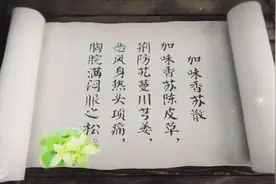 加味香苏散
加味香苏陈皮草,
荆防艽蔓川芎姜,
恶风身热头项痛,
胸脘满闷服之松。